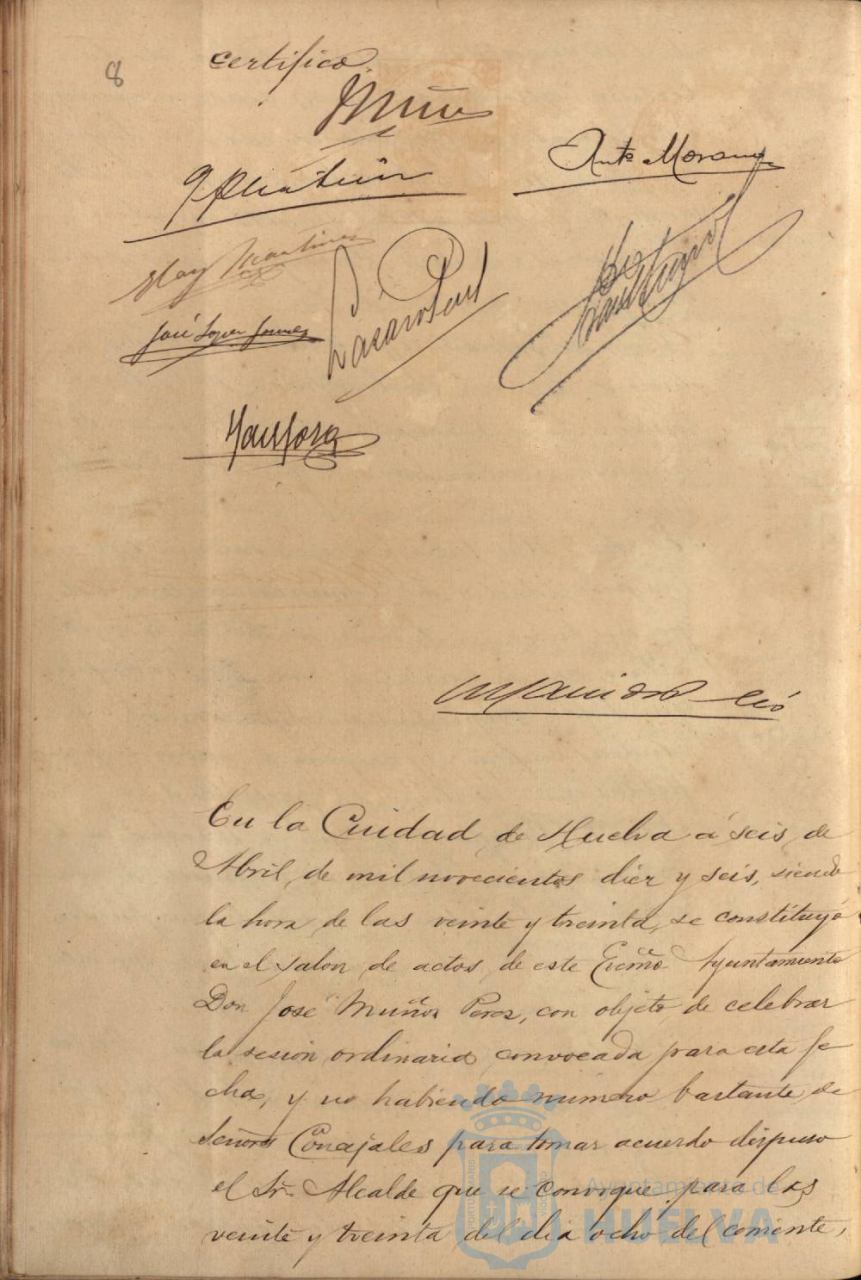 8
certifico.
Muñoz
Antº Moreno
Eloy Martinez
José Lopez Gomez
Lázaro Pent
En la Cuidad de Huelva á seis de
Abril, de mil novecientos diez y seis, siendo
la hora de las veinte y treinta, se constituyó
en el salon de actos, de este Excmo Ayuntamiento
Don José Muñoz Perez, con objeto, de celebrar
la sesión ordinaria, convocada para esta fe
cha, y no habiendo número bastante, de
Señores Concejales para tomar acuerdo dispuso
el Sr. Alcalde que se convoque, para las
veinte y treinta del dia ocho del corriente,
Ayuntamiento de
HUELVA